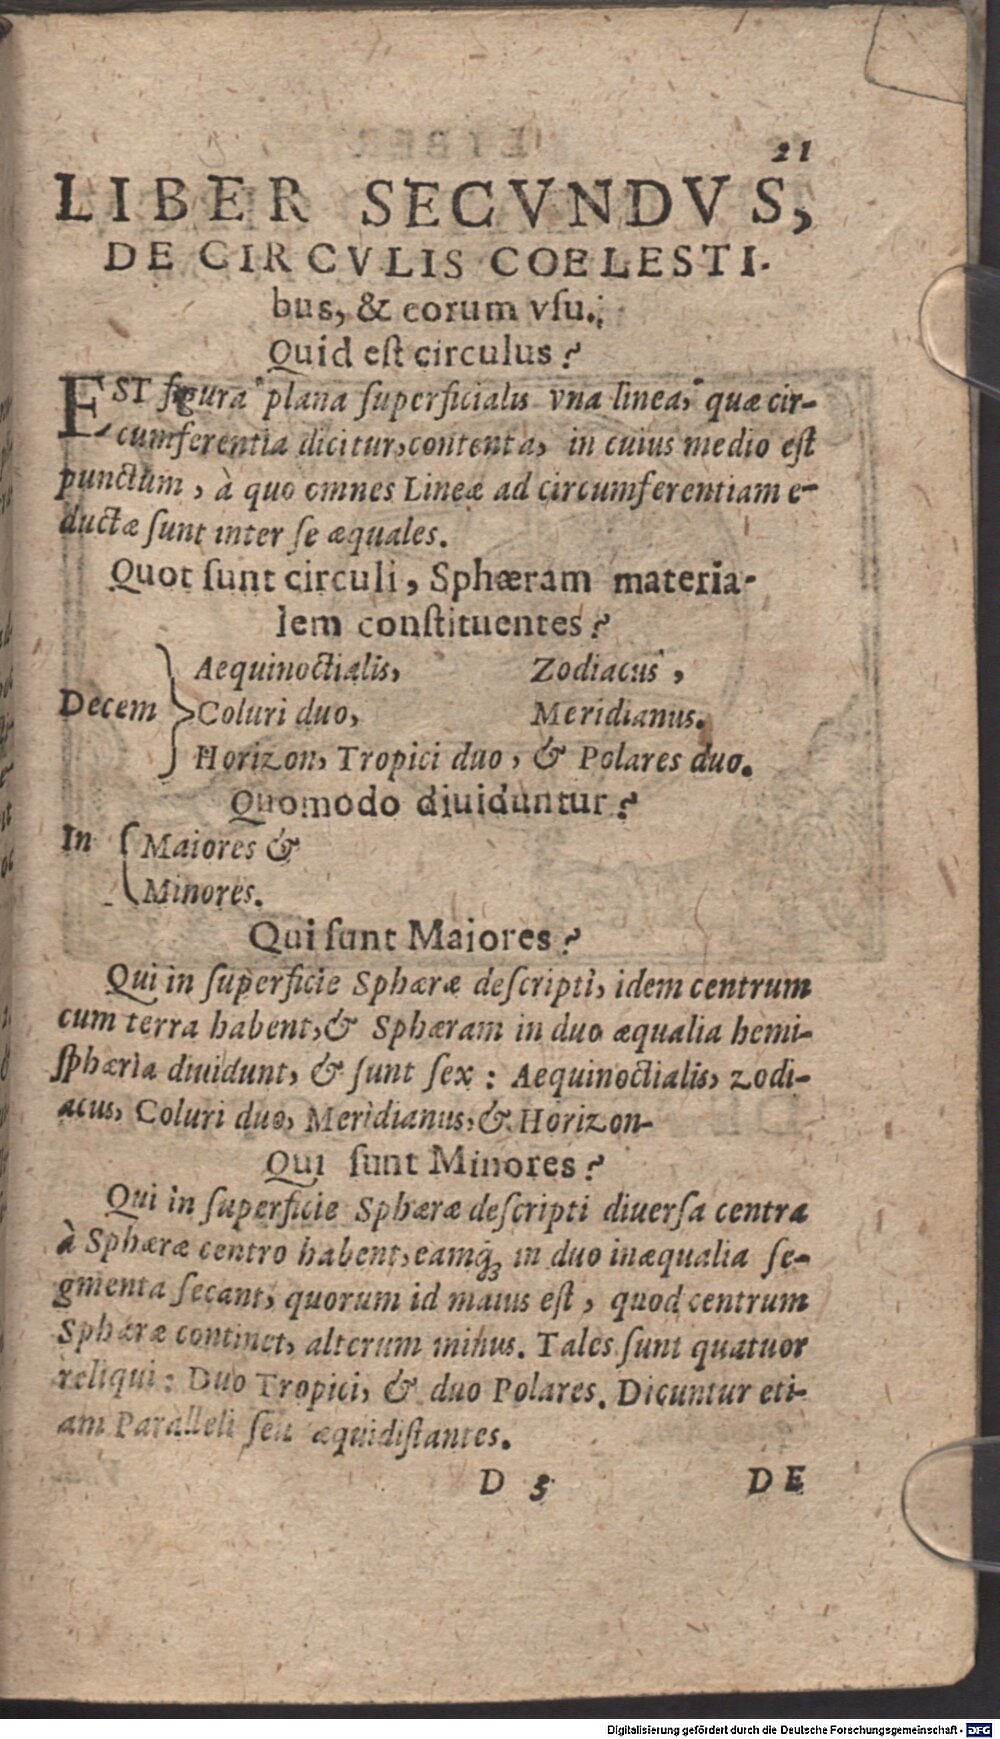 21
LIBER SECVNDVS,
DE CIRCVLIS COELESTI-
bus, & eorum vſu.
Quid eſt circulus?
EST figura plana ſuperficialis vna linea, quæ cir-
cumferentia dicitur, contenta, in cuius medio eſt
punctum, à quo omnes Lineæ ad circumferentiam e-
ductæ ſunt inter ſe æquales.
Quot ſunt circuli, Sphæram materia-
lem conſtituentes?
Aequinoctialis, Zodiacus,
Decem Coluri duo, Meridianus.
Horizon, Tropici duo, & Polares duo.
Quomodo diuiduntur?
In Maiores &
Minores.
Qui ſunt Maiores?
Qui in ſuperficie Sphæræ deſcripti, idem centrum
cum terra habent, & Sphæram in duo æqualia hemi-
ſphæria diuidunt, & ſunt ſex: Aequinoctialis, zodi-
acus, Coluri duo, Meridianus, & Horizon-
Qui ſunt Minores?
Qui in ſuperficie Sphæræ deſcripti diuerſa centra
à Sphæræ centro habent, eamq́ꝫ in duo inæqualia ſe-
gmenta ſecant, quorum id maius eſt, quod centrum
Sphæræ continet, alterum minus. Tales ſunt quatuor
reliqui: Duo Tropici, & duo Polares. Dicuntur eti-
am Paralleli ſeu æquidiſtantes.
D 5 DE
Digitalisierung gefördert durch die Deutsche Forschungsgemeinschaft - DFG